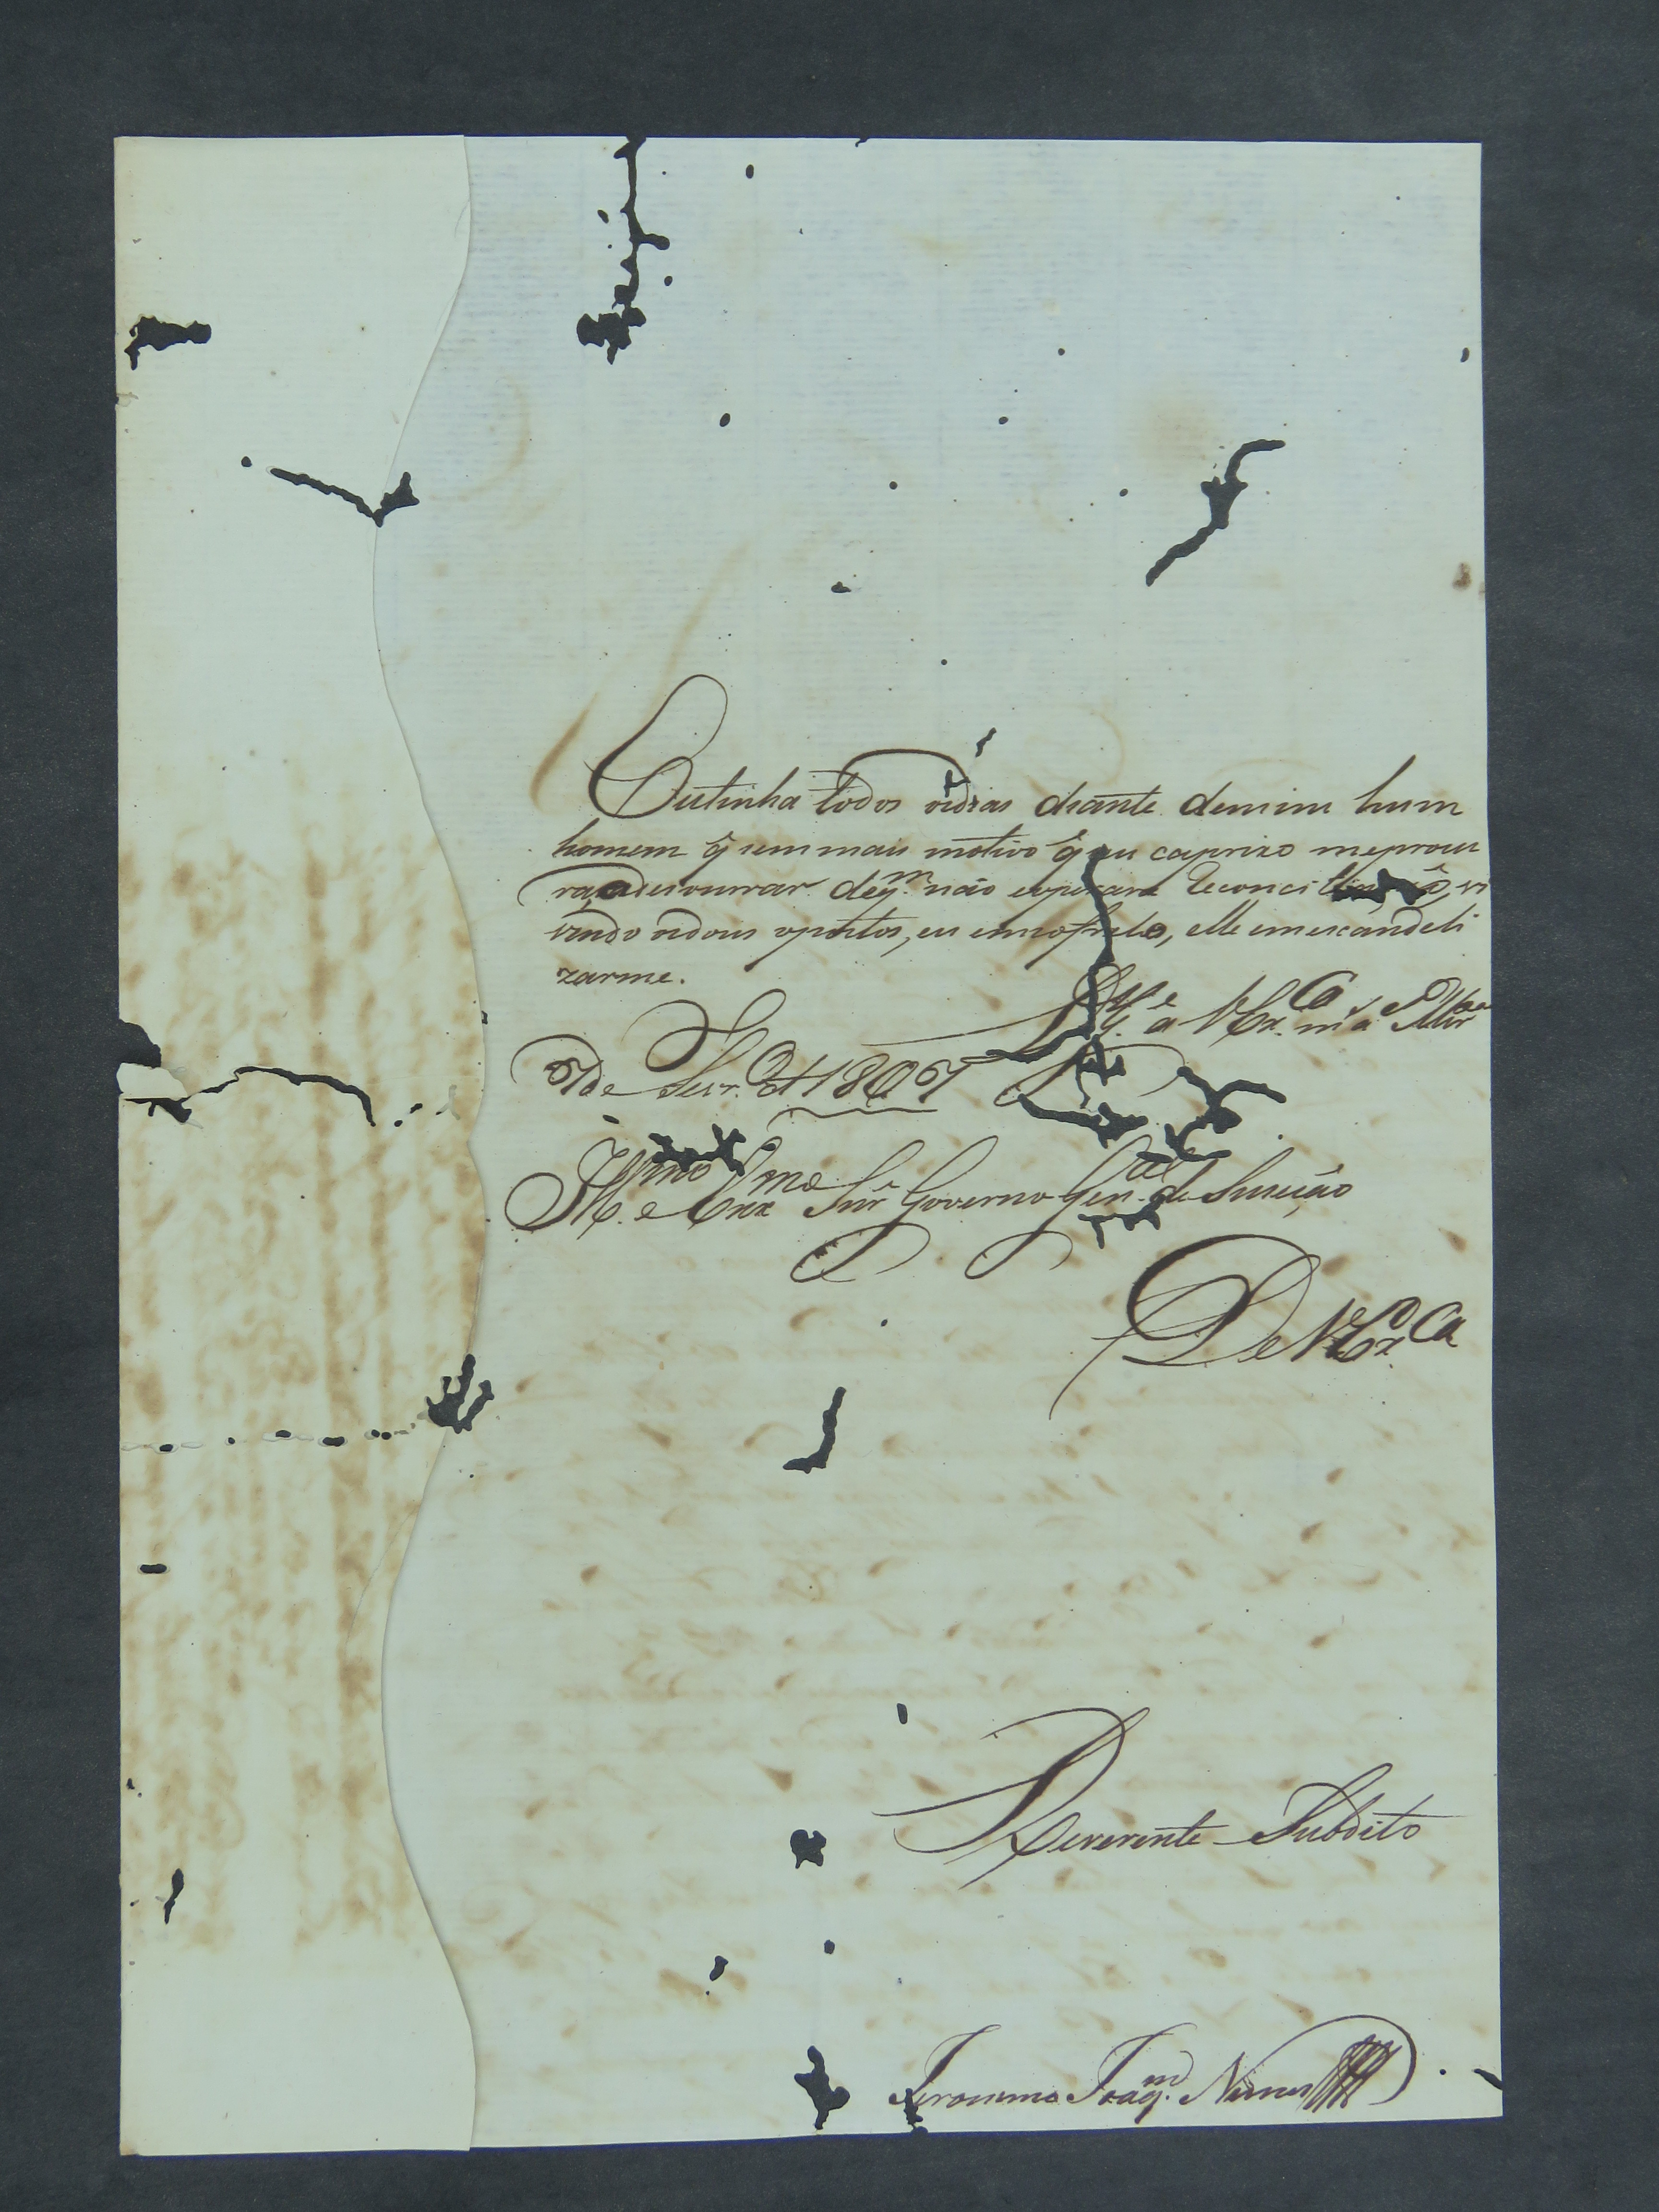 Eu tinha todos os dias diante demim hum
homem q̃ sem mais motivo q̃ seu caprixo meprocu
ra desonrrar deq.m não espera reconcil ão, vi
vindo os dous opostos, eu em sofrelo, elle emescandeli
zarme.
D.s g.e a V. Ex.ca m.s a.s
de 1807
Ill.mo e Exx.mo Snr̃ Governo Gen.al da Sucução
De V. Ex.ca
Reverente Subdito
Jeronimo Joaq.m Nunes